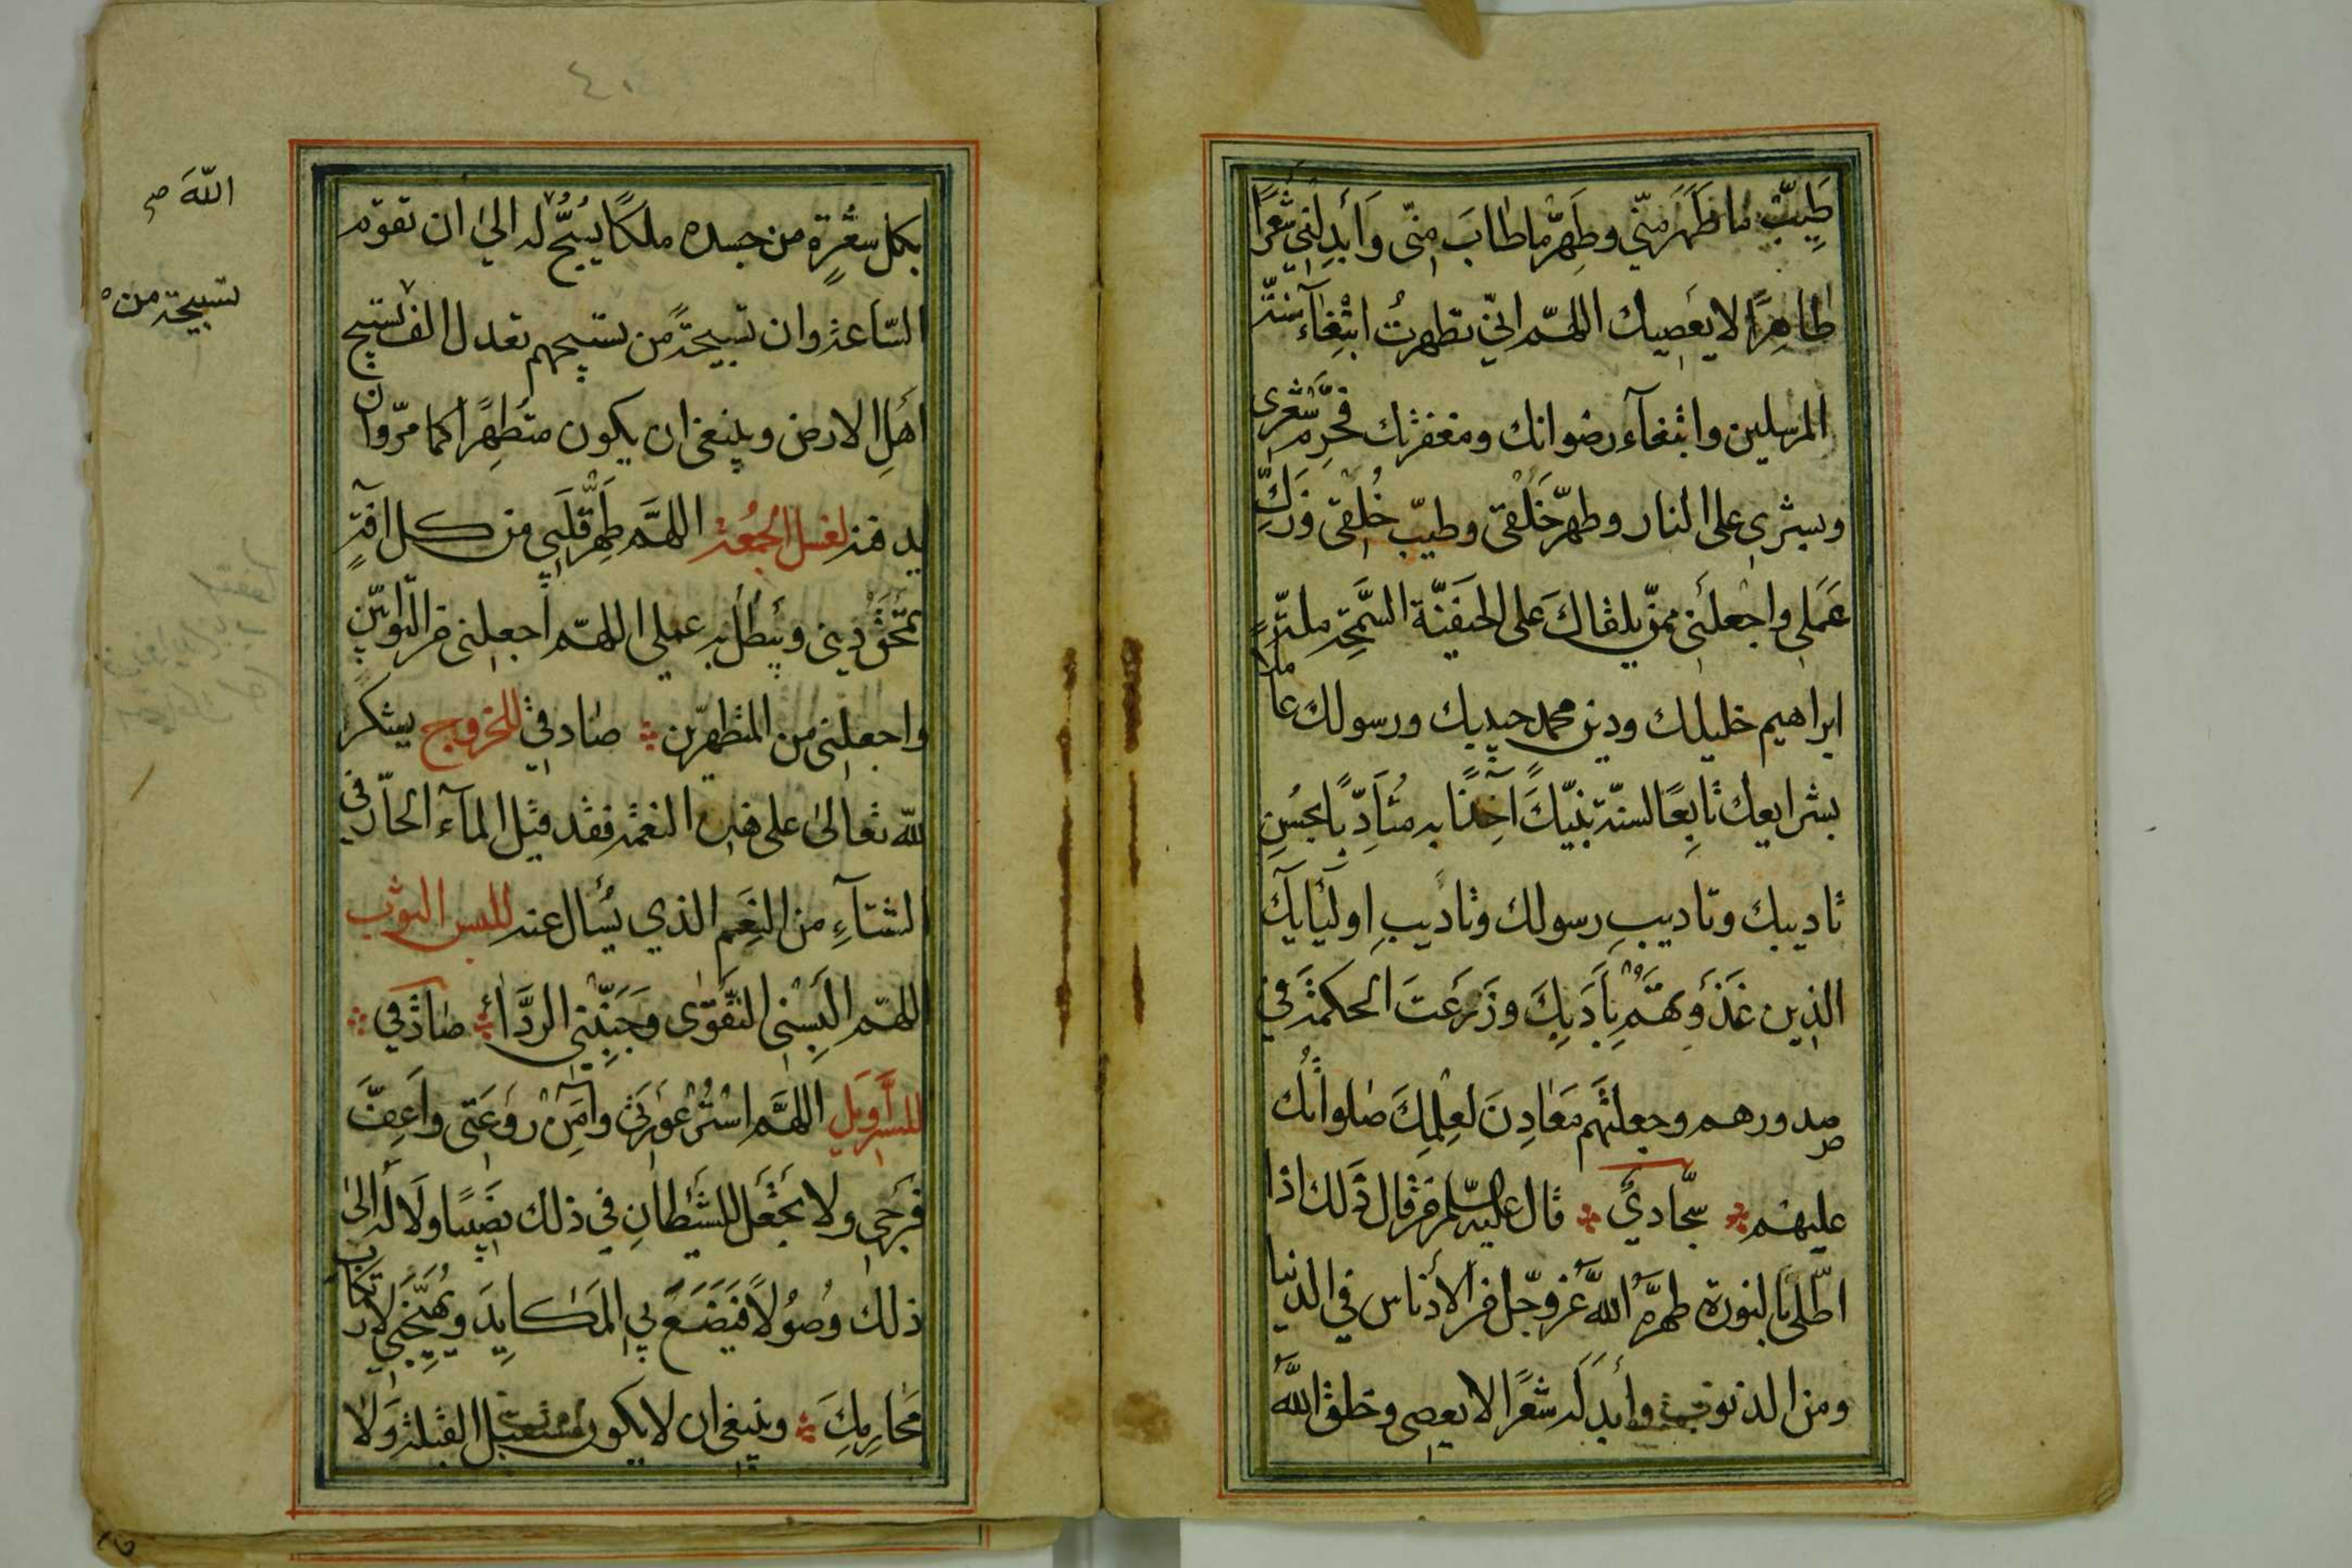 طَيِّبْ ما طَهُرَ مِنّي وطَهِّرْ ما طابَ مِنّي وَأَبْدِلْني شَعْرًا
طاهِرًا لا يَعصيك اللهمّ انّي تطهرتُ ابتِغآءَ سنّة
المرسلين وابتغآء رضوانك ومغفرتك فحَرِّم شَعْرى
وبشرى على النار وطهّر خَلْقى وطيّب خُلقى وزَكِّ
عَمَلى واجْعلني ممّن يلقاكَ على الحَنَفيّة السَّمحة ملّة
ابراهيم خليلك ودين محمد حبيبك ورسولك عاملا
بشرايعك تابِعًا لسنّة نبيّكَ آخِذًا به متأدِّبًا بحُسنِ
تاديبك وتاديبِ رسولك وتاديبِ اوليآيك
الذين غَذَوْتَهُمْ بِأَدَبِكَ وزَرَعتَ الحكمة في
صدورهم وجعلتَهم مَعَادِنَ لعِلمِكَ صلواتك
عليهم سجّادي قال عليه السّلم من قال ذلك اذا
اطّلى بالنورة طهّرَه اللهُ عزوجلّ من الأدناس في الدنيا
ومن الذنوب وأبدَلَه شعرًا لا يعصى وخلق اللهُ
بكل شعْرةٍ من جسده ملكًا يُسَبّحُ له الى ان تقوم
السّاعة وان تسبيحةً من تسبيحهم تعدل الف تسبيح
اهلِ الارض وينبغي ان يكون متُطهِرًا كما مرّ وان
يدفنه لغسل الجُمُعة اللهمَّ طهِّر قلبي من كل آفةٍ
تمحَقُ ديني ويبطُل به عملي اللهمّ اجعلني من التّوّابين
واجعلني من المتطهرّين صادقي للخروج يشكر
لله تعالى على هذه النعمة فقد قيل المآء الحارّ في
الشتآءِ من النعيم الذي يُسأل عنه للبس الثوب
اللهمّ البِسْنى التّقْوَى وجَنِّبْني الردَّا صادقي
للسَّراويل اللهمَّ اسْتُرْ عَوْرَتي وآمِنْ رَوْعَتى واَعِفَّ
فَرْجَي ولا تجْعَل للشَّيْطانِ في ذلك نصيبًا ولا لَه الى
ذلك وُصُولًا فَيَضَعَ لِي المَكايِدَ ويُهَيِّجَنِي لارتكاب
مَحارِمِكَ وينبغي ان لا يكون مستقبل القبلة وَلا
اللهَ صح
تسبيحة من
٤٠